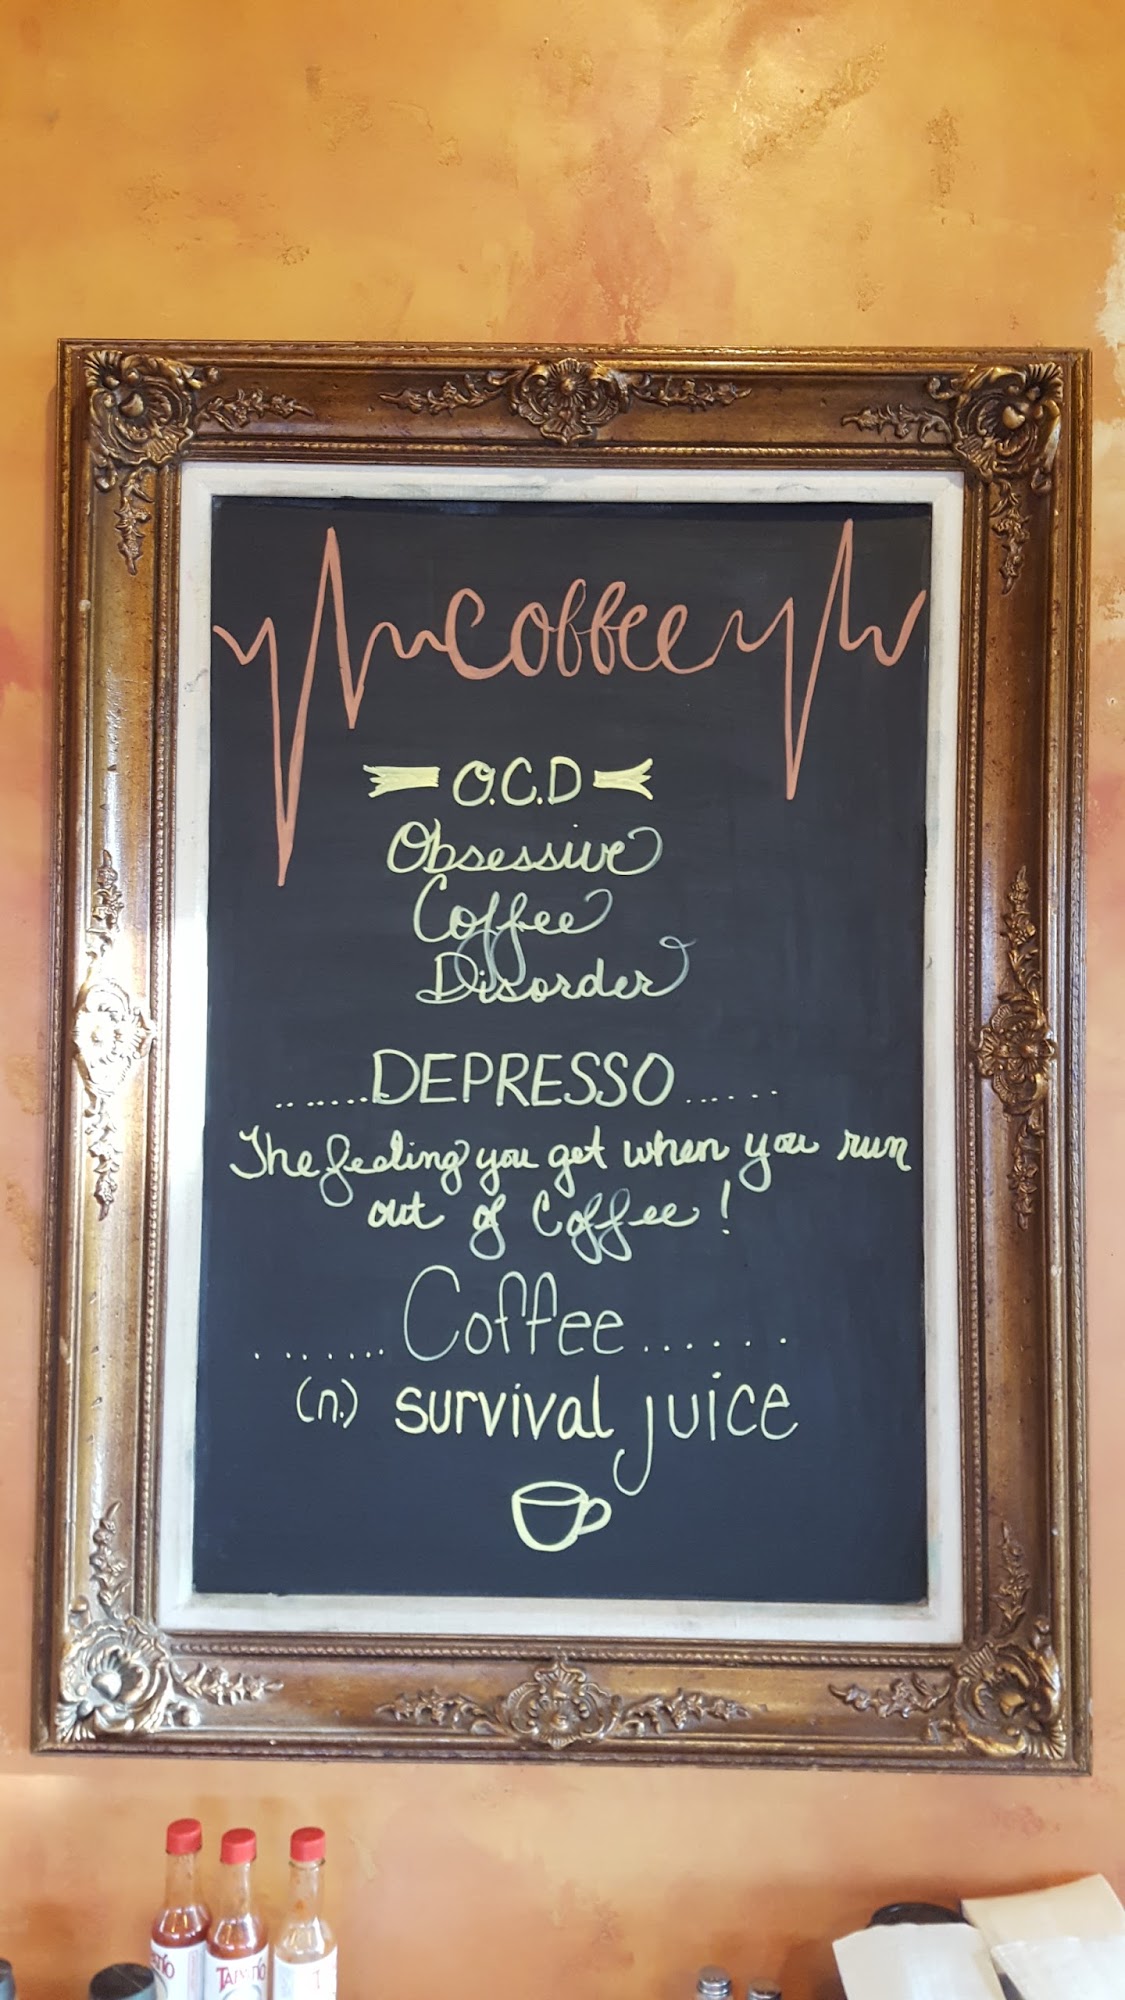 coffee
O.C.D
Obsessive
Coffee
Disorder
.......DEPRESSO......
The feeling you get when you run
out of Coffee!
.......Coffee......
(n.) survival juice
TAPATIO